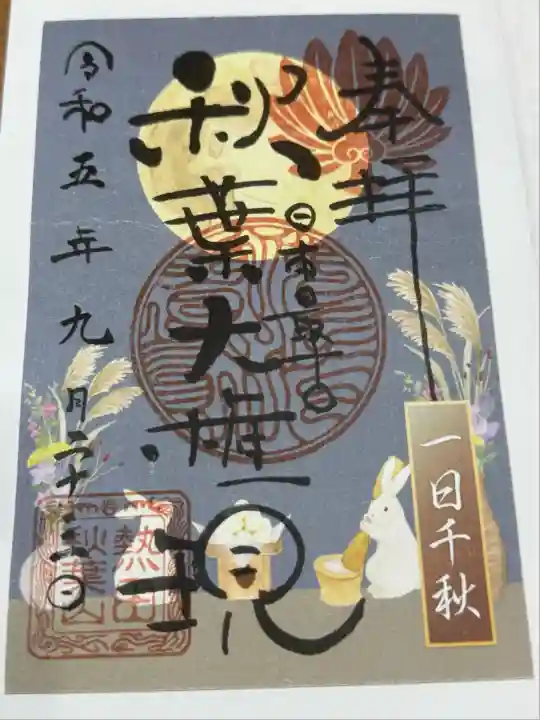 奉拝
日本最初
秋葉大権現
令和五年九月二十三日
一日千秋
熱田
秋葉山